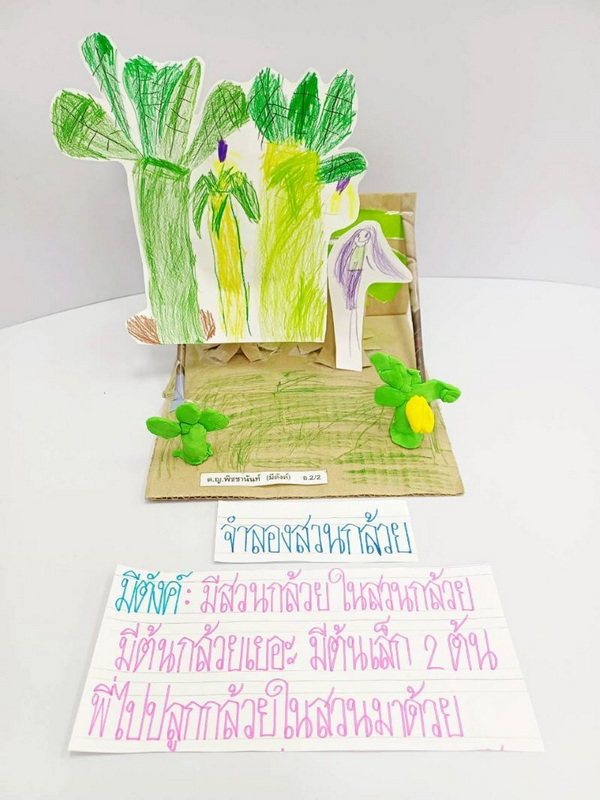 ด.ญ.พิชชานันท์ (มีตังค์) อ.2/2
จำลองสวนกล้วย
มีตังค์: มีสวนกล้วย ในสวนกล้วย
มีต้นกล้วยเยอะ มีต้นเล็ก 2 ต้น
พี่ไปปลูกกล้วยในสวนมาด้วย